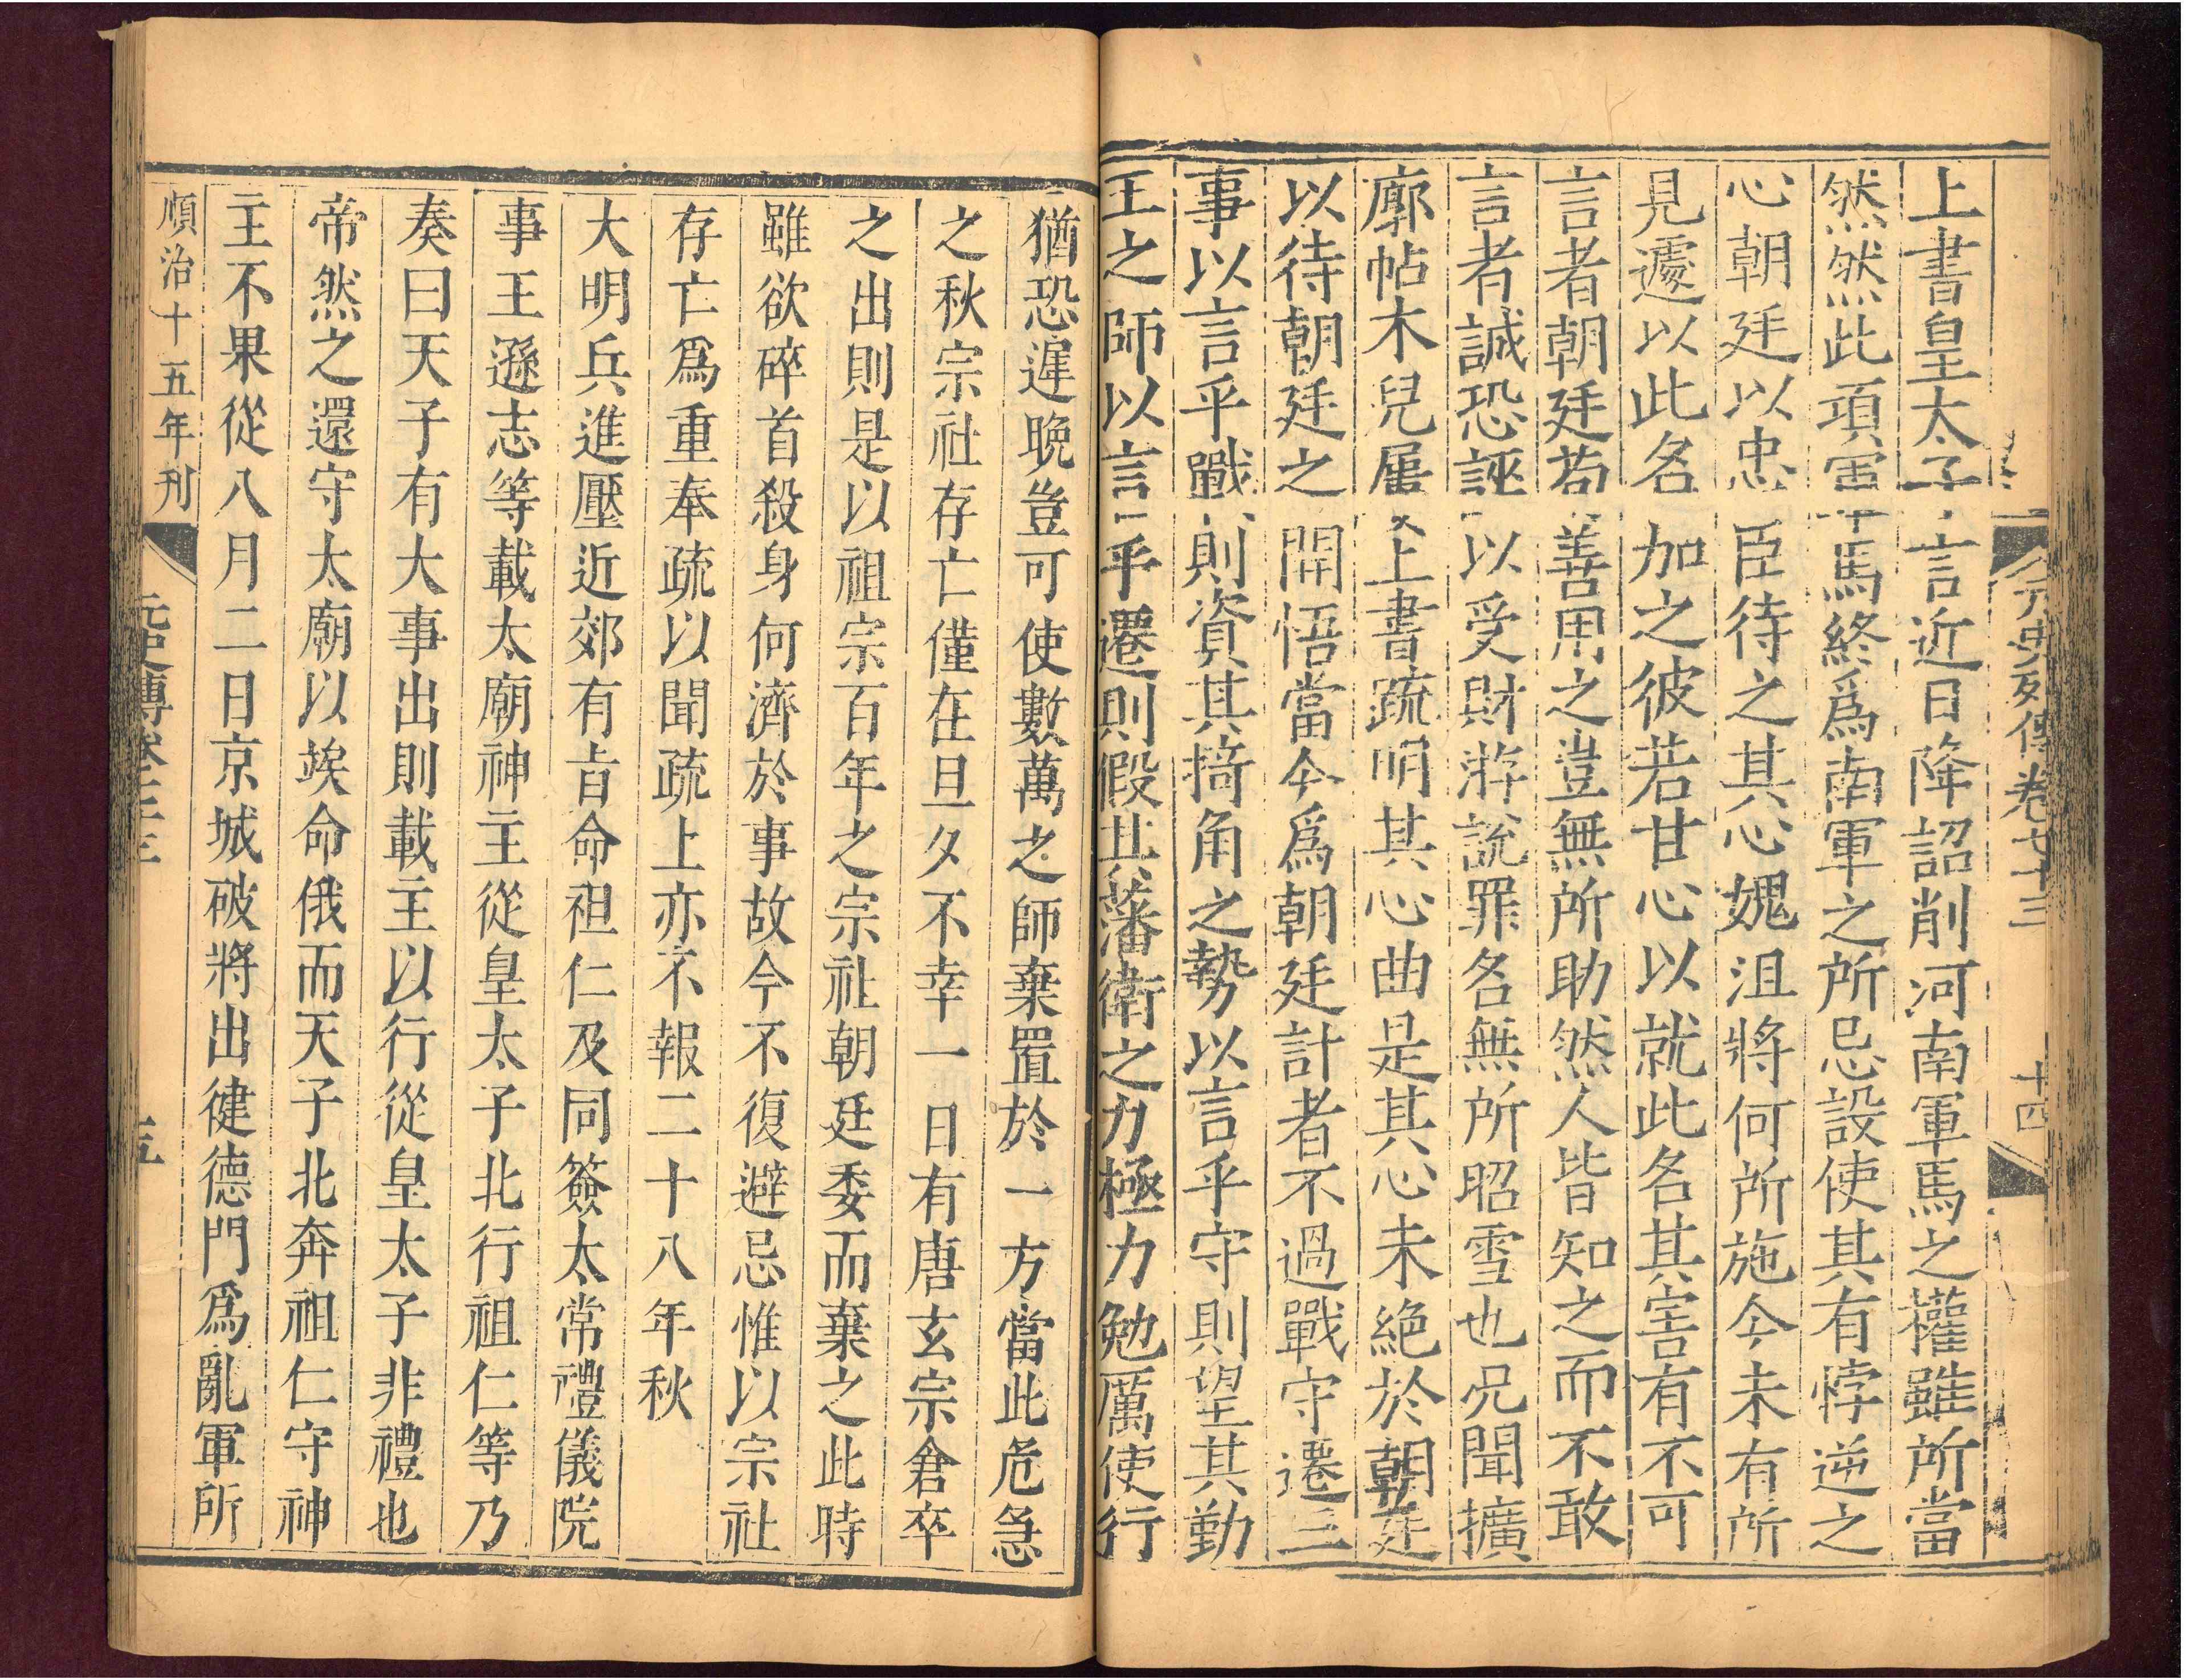 元史列傳卷七十三　十四
上書皇太子言近日降詔削河南軍馬之權雖所當
然然此項軍馬終爲南軍之所忌設使其有悖逆之
心朝廷以忠臣待之其心媿沮將何所施今未有所
見遽以此名加之彼若甘心以就此名其害有不可
言者朝廷苟善用之豈無所助然人皆知之而不敢
言者誠恐誣以受財游說罪名無所昭雪也况聞擴
廓帖木兒屢上書疏明其心曲是其心未絕於朝廷
以待朝廷之開悟當今爲朝廷計者不過戰守遷三
事以言乎戰則資其掎角之勢以言乎守則望其勤
王之師以言乎遷則假其藩衛之力極力勉厲使行
猶恐遲晚豈可使數萬之師棄置於一方當此危急
之秋宗社存亡僅在旦夕不幸一日有唐玄宗倉卒
之出則是以祖宗百年之宗社朝廷委而棄之此時
雖欲碎首殺身何濟於事故今不復避忌惟以宗社
存亡爲重奉疏以聞疏上亦不報二十八年秋
大明兵進壓近郊有旨命祖仁及同簽太常禮儀院
事王遜志等載太廟神主從皇太子北行祖仁等乃
奏曰天子有大事出則載主以行從皇太子非禮也
帝然之還守太廟以俟命俄而天子北奔祖仁守神
主不果從八月二日京城破將出健德門爲亂軍所
順治十五年刊